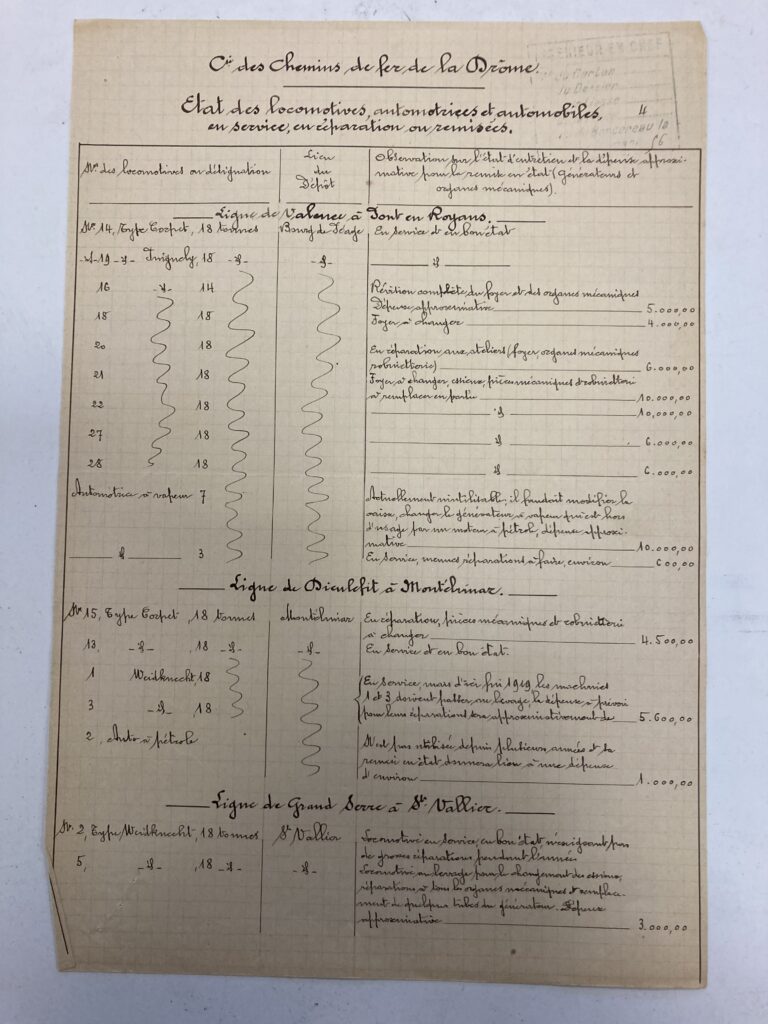 Cie des Chemins de fer de la Drôme.
Etat des locomotives, automotrices et automobiles, 4
en service, en réparation ou remisées.
Nos des locomotives ou désignation
Lieu du Dépôt
Observation sur l'état d'entretien et la dépense approxi-
mative pour la remise en état (Générateurs et
organes mécaniques).
Ligne de Valence à Pont en Royans.
No 14, Type Corpet, 18 tonnes Bourg de Péage En service et en bon état
-d- 19 -d- Pinguely, 18 -d- -d- d
16 -d- 14 Révision complète du foyer et des organes mécaniques
Dépense approximative 5.000,00
18 18 Foyer à changer 4.000,00
20 18 En réparation aux ateliers (foyer, organes mécaniques
robinetterie) 6.000,00
21 18 Foyer à changer, essieux, pièces mécaniques et robinetterie
à remplacer en partie 10.000,00
22 18 d 10,000,00
27 18 d 6.000,00
28 18 d 6.000,00
Automotrice à vapeur 7 Actuellement inutilisable; il faudrait modifier la
caisse, changer le générateur à vapeur qui est hors
d'usage par un moteur à pétrole, dépense approxi-
mative 10.000,00
d 3 En service, menues réparations à faire, environ 600,00
Ligne de Dieulefit à Montélimar.
No 15, Type Corpet, 18 tonnes Montélimar En réparation, pièces mécaniques et robinetterie
à changer 4.500,00
13, -d- , 18 -d- -d- En service et en bon état.
1 Weidknecht, 18 En service, mais d'ici fin 1919 les machines
3 -d- , 18 1 et 3 doivent passer au levage, la dépense à prévoir
pour leurs réparations sera approximativement de 5.600,00
2, Auto à pétrole N'est pas utilisée depuis plusieurs années et sa
remise en état donnera lieu à une dépense
d'environ 1.000,00
Ligne de Grand Serre à St Vallier.
No 2, Type Weidknecht, 18 tonnes St Vallier Locomotive en service, en bon état n'exigeant pas
de grosses réparations pendant l'année
5, -d- , 18 -d- -d- Locomotive au levage pour le changement des essieux,
réparations à tous les organes mécaniques et remplace-
ment de quelques tubes du générateur. Dépense
approximative 3.000,00